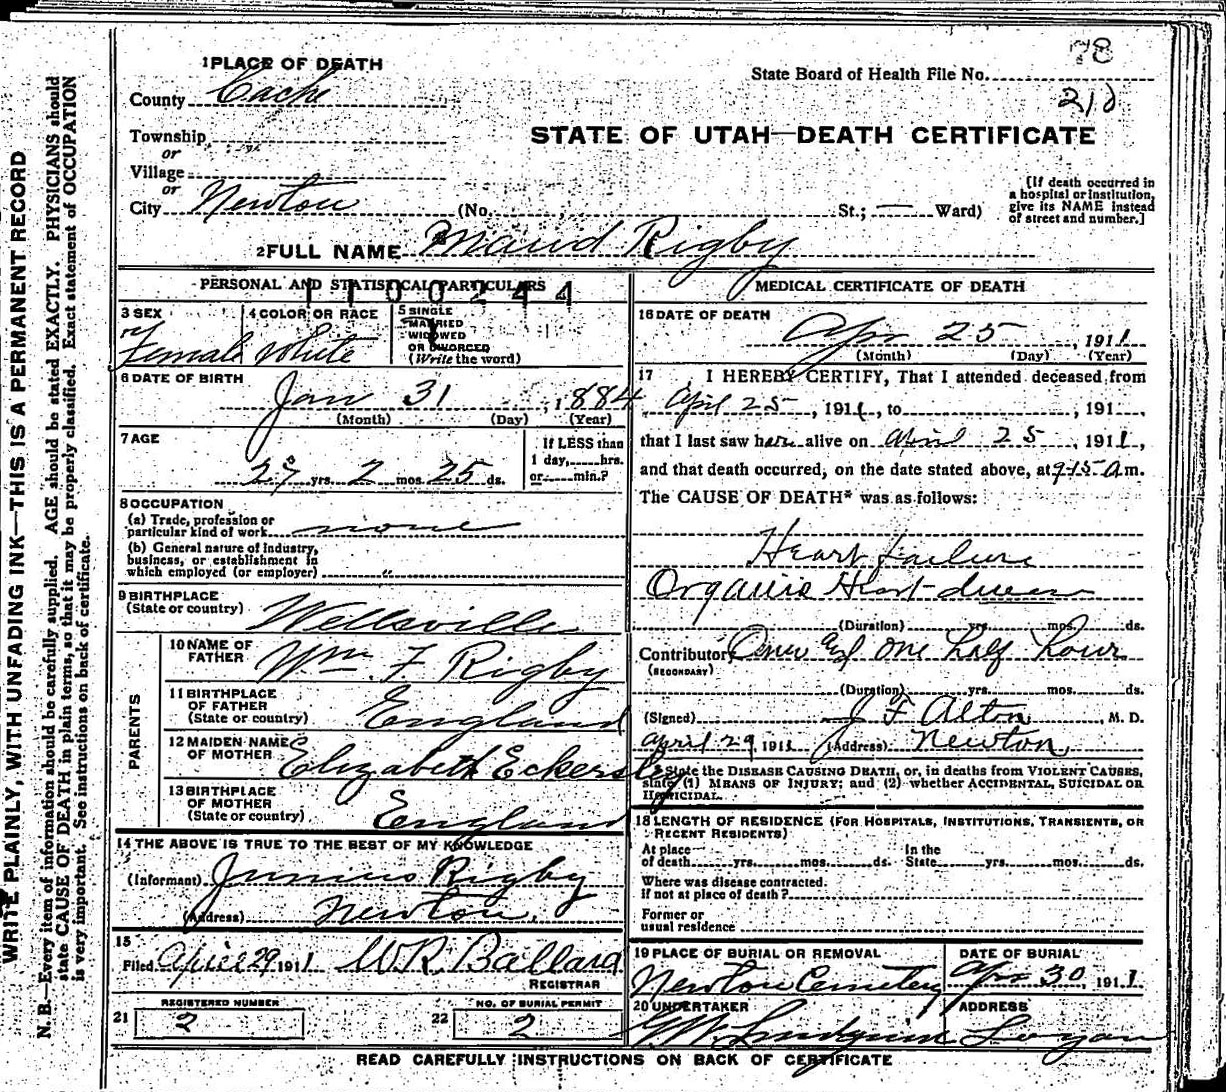 78
1 PLACE OF DEATH
State Board of Health File No.
County Cache
218
Township
STATE OF UTAH—DEATH CERTIFICATE
or
Village
or
City Newton (No. St.; — Ward)
[If death occurred in
a hospital or institution,
give its NAME instead
of street and number.]
2 FULL NAME Maud Rigby
PERSONAL AND STATISTICAL PARTICULARS
1100244
3 SEX
Female
4 COLOR OR RACE
White
5 SINGLE
MARRIED
WIDOWED
OR DIVORCED
(Write the word)
6 DATE OF BIRTH
Jan 31, 1884
(Month) (Day) (Year)
7 AGE
27 yrs. 2 mos. 25 ds.
If LESS than
1 day, hrs.
or min.?
8 OCCUPATION
(a) Trade, profession or
particular kind of work none
(b) General nature of industry,
business, or establishment in
which employed (or employer) "
9 BIRTHPLACE
(State or country) Wellsville
PARENTS
10 NAME OF
FATHER Wm. F Rigby
11 BIRTHPLACE
OF FATHER
(State or country) England
12 MAIDEN NAME
OF MOTHER Elizabeth Eckersly
13 BIRTHPLACE
OF MOTHER
(State or country) England
14 THE ABOVE IS TRUE TO THE BEST OF MY KNOWLEDGE
(Informant) Junius Rigby
(Address) Newton.
15
Filed April 29 1911 W R Ballard
REGISTRAR
REGISTERED NUMBER
21 2
NO. OF BURIAL PERMIT
22 2
MEDICAL CERTIFICATE OF DEATH
16 DATE OF DEATH
Apr 25, 1911
(Month) (Day) (Year)
17 I HEREBY CERTIFY, That I attended deceased from
April 25, 1911, to , 191 ,
that I last saw her alive on April 25, 1911,
and that death occurred, on the date stated above, at 9-15 A m.
The CAUSE OF DEATH* was as follows:
Heart Failure
Organic Heart disease
(Duration) yrs. mos. ds.
Contributory One half hour
(SECONDARY)
(Duration) yrs. mos. ds.
(Signed) J F Alton, M. D.
April 29, 1911 (Address) Newton
* State the DISEASE CAUSING DEATH, or, in deaths from VIOLENT CAUSES,
state (1) MEANS OF INJURY; and (2) whether ACCIDENTAL, SUICIDAL OR
HOMICIDAL.
18 LENGTH OF RESIDENCE (FOR HOSPITALS, INSTITUTIONS, TRANSIENTS, OR
RECENT RESIDENTS)
At place
of death yrs. mos. ds.
In the
State yrs. mos. ds.
Where was disease contracted.
If not at place of death?
Former or
usual residence
19 PLACE OF BURIAL OR REMOVAL
Newton Cemetery
DATE OF BURIAL
Apr 30, 1911
20 UNDERTAKER
Lundquist
ADDRESS
Logan
READ CAREFULLY INSTRUCTIONS ON BACK OF CERTIFICATE
WRITE PLAINLY, WITH UNFADING INK—THIS IS A PERMANENT RECORD
N. B.—Every item of information should be carefully supplied. AGE should be stated EXACTLY. PHYSICIANS should
state CAUSE OF DEATH in plain terms, so that it may be properly classified. Exact statement of OCCUPATION
is very important. See instructions on back of certificate.